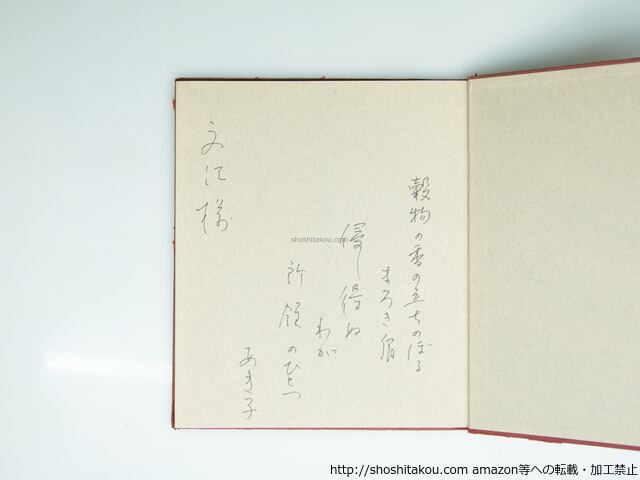 穀物の香の立ちのぼる
まろき肩
侵し得ぬ
わが
所領のひとつ
あき子
文江様
shoshitakou.com
http://shoshitakou.com amazon等への転載・加工禁止